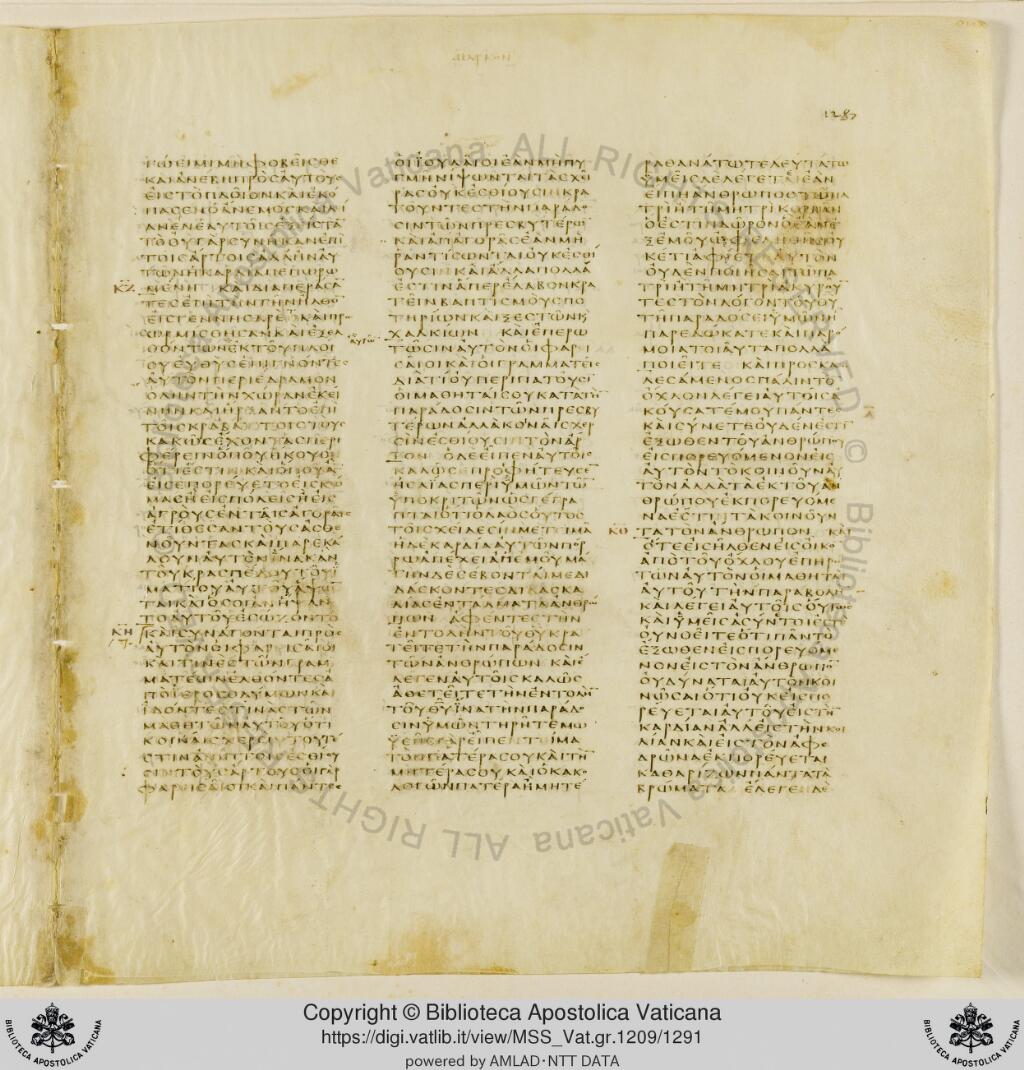 1287
ΓΩΕΙΜΙΜΗΦΟΒΕΙϹΘΕ
ΚΑΙΑΝΕΒΗΠΡΟϹΑΥΤΟΥϹ
ΕΙϹΤΟΠΛΟΙΟΝΚΑΙΕΚΟ
ΠΑϹΕΝΟΑΝΕΜΟϹΚΑΙΛΙ
ΑΝΕΝΕΑΥΤΟΙϹΕΞΙϹΤΑ̅
ΤΟΟΥΓΑΡϹΥΝΗΚΑΝΕΠΙ
ΤΟΙϹΑΡΤΟΙϹΑΛΛΗΝΑΥ
ΤΩΝΗΚΑΡΔΙΑΠΕΠΩΡΩ
ΜΕΝΗ ΚΑΙΔΙΑΠΕΡΑϹΑ̅
ΤΕϹΕΠΙΤΗΝΓΗΝΗΛΘΟ̅
ΕΙϹΓΕΝΝΗϹΑΡΕΤΚΑΙΠΡΟϹ
ΩΡΜΙϹΘΗϹΑΝΚΑΙΕΞΕΛ
ΘΟΝΤΩΝΕΚΤΟΥΠΛΟΙ
ΟΥΕΥΘΥϹΕΠΙΓΝΟΝΤΕϹ
ΑΥΤΟΝΠΕΡΙΕΔΡΑΜΟΝ
ΟΛΗΝΤΗΝΧΩΡΑΝΕΚΕΙ
ΝΗΝΚΑΙΗΡΞΑΝΤΟΕΠΙ
ΤΟΙϹΚΡΑΒΑΤΤΟΙϹΤΟΥϹ
ΚΑΚΩϹΕΧΟΝΤΑϹΠΕΡΙ
ΦΕΡΕΙΝΟΠΟΥΗΚΟΥΟΝ
ΟΤΙΕϹΤΙΝ ΚΑΙΟΠΟΥΑ̅
ΕΙϹΕΠΟΡΕΥΕΤΟΕΙϹΚΩ
ΜΑϹΗΕΙϹΠΟΛΕΙϹΗΕΙϹ
ΑΓΡΟΥϹΕΝΤΑΙϹΑΓΟΡΑΙϹ
ΕΤΙΘΕϹΑΝΤΟΥϹΑϹΘΕ
ΝΟΥΝΤΑϹΚΑΙΠΑΡΕΚΑ
ΛΟΥΝΑΥΤΟΝΙΝΑΚΑΝ
ΤΟΥΚΡΑϹΠΕΔΟΥΤΟΥΙ
ΜΑΤΙΟΥΑΥΤΟΥΑΨΩ̅
ΤΑΙΚΑΙΟϹΟΙΑΝΗΨΑΝ
ΤΟΑΥΤΟΥΕϹΩΖΟΝΤΟ
ΚΑΙϹΥΝΑΓΟΝΤΑΙΠΡΟϹ
ΑΥΤΟΝΟΙΦΑΡΙϹΑΙΟΙ
ΚΑΙΤΙΝΕϹΤΩΝΓΡΑΜ
ΜΑΤΕΩΝΕΛΘΟΝΤΕϹΑ
ΠΟΙΕΡΟϹΟΛΥΜΩΝΚΑΙ
ΙΔΟΝΤΕϹΤΙΝΑϹΤΩΝ
ΜΑΘΗΤΩΝΑΥΤΟΥΟΤΙ
ΚΟΙΝΑΙϹΧΕΡϹΙΝΤΟΥΤΕ
ϹΤΙΝΑΝΙΠΤΟΙϹΕϹΘΙΟΥ
ϹΙΝΤΟΥϹΑΡΤΟΥϹΟΙΓΑΡ
ΦΑΡΙϹΑΙΟΙΚΑΙΠΑΝΤΕϹ
ΟΙΙΟΥΔΑΙΟΙΕΑΝΜΗΠΥ
ΓΜΗΝΙΨΩΝΤΑΙΤΑϹΧΕΙ
ΡΑϹΟΥΚΕϹΘΙΟΥϹΙΝΚΡΑ
ΤΟΥΝΤΕϹΤΗΝΠΑΡΑΔΟ
ϹΙΝΤΩΝΠΡΕϹΒΥΤΕΡΩ̅
ΚΑΙΑΠΑΓΟΡΑϹΕΑΝΜΗ
ΡΑΝΤΙϹΩΝΤΑΙΟΥΚΕϹΘΙ
ΟΥϹΙΝΚΑΙΑΛΛΑΠΟΛΛΑ
ΕϹΤΙΝΑΠΕΡΕΛΑΒΟΝΚΡΑ
ΤΕΙΝΒΑΠΤΙϹΜΟΥϹΠΟ
ΤΗΡΙΩΝΚΑΙΞΕϹΤΩΝΚ
ΧΑΛΚΙΩΝ ΚΑΙΕΠΕΡΩ
ΤΩϹΙΝΑΥΤΟΝΟΙΦΑΡΙ
ϹΑΙΟΙΚΑΙΟΙΓΡΑΜΜΑΤΕΙϹ
ΔΙΑΤΙΟΥΠΕΡΙΠΑΤΟΥϹΙ̅
ΟΙΜΑΘΗΤΑΙϹΟΥΚΑΤΑΤΗ̅
ΠΑΡΑΔΟϹΙΝΤΩΝΠΡΕϹΒΥ
ΤΕΡΩΝΑΛΛΑΚΟΙΝΑΙϹΧΕΡ
ϹΙΝΕϹΘΙΟΥϹΙΝΤΟΝΑΡ
ΤΟΝ ΟΔΕΕΙΠΕΝΑΥΤΟΙϹ
ΚΑΛΩϹΕΠΡΟΦΗΤΕΥϹΕ̅
ΗϹΑΙΑϹΠΕΡΙΥΜΩΝΤΩ̅
ΥΠΟΚΡΙΤΩΝΩϹΓΕΓΡΑ
ΠΤΑΙΟΤΙΟΛΑΟϹΟΥΤΟϹ
ΤΟΙϹΧΕΙΛΕϹΙΝΜΕΤΙΜΑ
ΗΔΕΚΑΡΔΙΑΑΥΤΩΝΠΟΡ
ΡΩΑΠΕΧΕΙΑΠΕΜΟΥΜΑ
ΤΗΝΔΕϹΕΒΟΝΤΑΙΜΕΔΙ
ΔΑϹΚΟΝΤΕϹΔΙΔΑϹΚΑ
ΛΙΑϹΕΝΤΑΛΜΑΤΑΑΝΘΡΩ
ΠΩΝ ΑΦΕΝΤΕϹΤΗΝ
ΕΝΤΟΛΗΝΤΟΥΘΥΚΡΑ
ΤΕΙΤΕΤΗΝΠΑΡΑΔΟϹΙΝ
ΤΩΝΑΝΘΡΩΠΩΝ ΚΑΙΕ
ΛΕΓΕΝΑΥΤΟΙϹΚΑΛΩϹ
ΑΘΕΤΕΙΤΕΤΗΝΕΝΤΟΛΗ̅
ΤΟΥΘΥΙΝΑΤΗΝΠΑΡΑΔΟ
ϹΙΝΥΜΩΝΤΗΡΗΤΕΜΩ
ΥϹΗϹΓΑΡΕΙΠΕΝΤΙΜΑ
ΤΟΝΠΑΤΕΡΑϹΟΥΚΑΙΤΗ̅
ΜΗΤΕΡΑϹΟΥΚΑΙΟΚΑΚΟ
ΛΟΓΩΝΠΑΤΕΡΑΗΜΗΤΕ
ΡΑΘΑΝΑΤΩΤΕΛΕΥΤΑΤΩ
ΥΜΕΙϹΔΕΛΕΓΕΤΑΙΕΑΝ
ΕΙΠΗΑΝΘΡΩΠΟϹΤΩΠΑ
ΤΡΙΗΤΗΜΗΤΡΙΚΟΡΒΑΝ
ΟΕϹΤΙΝΔΩΡΟΝΟΕΑΝΕ
ΞΕΜΟΥΩΦΕΛΗΘΗϹΟΥ
ΚΕΤΙΑΦΙΕΤΕΑΥΤΟΝ
ΟΥΔΕΝΠΟΙΗϹΑΙΤΩΠΑ
ΤΡΙΗΤΗΜΗΤΡΙΑΚΥΡΟΥ̅
ΤΕϹΤΟΝΛΟΓΟΝΤΟΥΘΥ
ΤΗΠΑΡΑΔΟϹΕΙΥΜΩΝΗ
ΠΑΡΕΔΩΚΑΤΕΚΑΙΠΑΡΟ
ΜΟΙΑΤΟΙΑΥΤΑΠΟΛΛΑ
ΠΟΙΕΙΤΕ ΚΑΙΠΡΟϹΚΑ
ΛΕϹΑΜΕΝΟϹΠΑΛΙΝΤΟ̅
ΟΧΛΟΝΛΕΓΕΙΑΥΤΟΙϹΑ
ΚΟΥϹΑΤΕΜΟΥΠΑΝΤΕϹ
ΚΑΙϹΥΝΕΤΕΟΥΔΕΝΕϹΤΙ̅
ΕΞΩΘΕΝΤΟΥΑΝΘΡΩΠΟΥ
ΕΙϹΠΟΡΕΥΟΜΕΝΟΝΕΙϹ
ΑΥΤΟΝΤΟΚΟΙΝΟΥΝΑΥ
ΤΟΝΑΛΛΑΤΑΕΚΤΟΥΑΝ
ΘΡΩΠΟΥΕΚΠΟΡΕΥΟΜΕ
ΝΑΕϹΤΙΝΤΑΚΟΙΝΟΥΝ
ΤΑΤΟΝΑΝΘΡΩΠΟΝ ΚΑΙ
ΟΤΕΕΙϹΗΛΘΕΝΕΙϹΟΙΚΟ̅
ΑΠΟΤΟΥΟΧΛΟΥΕΠΗΡΩ
ΤΩΝΑΥΤΟΝΟΙΜΑΘΗΤΑΙ
ΑΥΤΟΥΤΗΝΠΑΡΑΒΟΛΗ̅
ΚΑΙΛΕΓΕΙΑΥΤΟΙϹΟΥΤΩϹ
ΚΑΙΥΜΕΙϹΑϹΥΝΕΤΟΙΕϹΤΕ
ΟΥΝΟΕΙΤΕΟΤΙΠΑΝΤΟ
ΕΞΩΘΕΝΕΙϹΠΟΡΕΥΟΜΕ
ΝΟΝΕΙϹΤΟΝΑΝΘΡΩΠΟ̅
ΟΥΔΥΝΑΤΑΙΑΥΤΟΝΚΟΙ
ΝΩϹΑΙΟΤΙΟΥΚΕΙϹΠΟ
ΡΕΥΕΤΑΙΑΥΤΟΥΕΙϹΤΗ̅
ΚΑΡΔΙΑΝΑΛΛΕΙϹΤΗΝΚΟΙ
ΛΙΑΝΚΑΙΕΙϹΤΟΝΑΦΕ
ΔΡΩΝΑΕΚΠΟΡΕΥΕΤΑΙ
ΚΑΘΑΡΙΖΩΝΠΑΝΤΑΤΑ
ΒΡΩΜΑΤΑ ΕΛΕΓΕΝΔΕ
Vaticana ALL RIGHTS RESERVED © Biblioteca Apostolica Vaticana ALL RIGHTS
Copyright © Biblioteca Apostolica Vaticana
https://digi.vatlib.it/view/MSS_Vat.gr.1209/1291
powered by AMLAD·NTT DATA
BIBLIOTECA APOSTOLICA VATICANA
BIBLIOTECA APOSTOLICA VATICANA